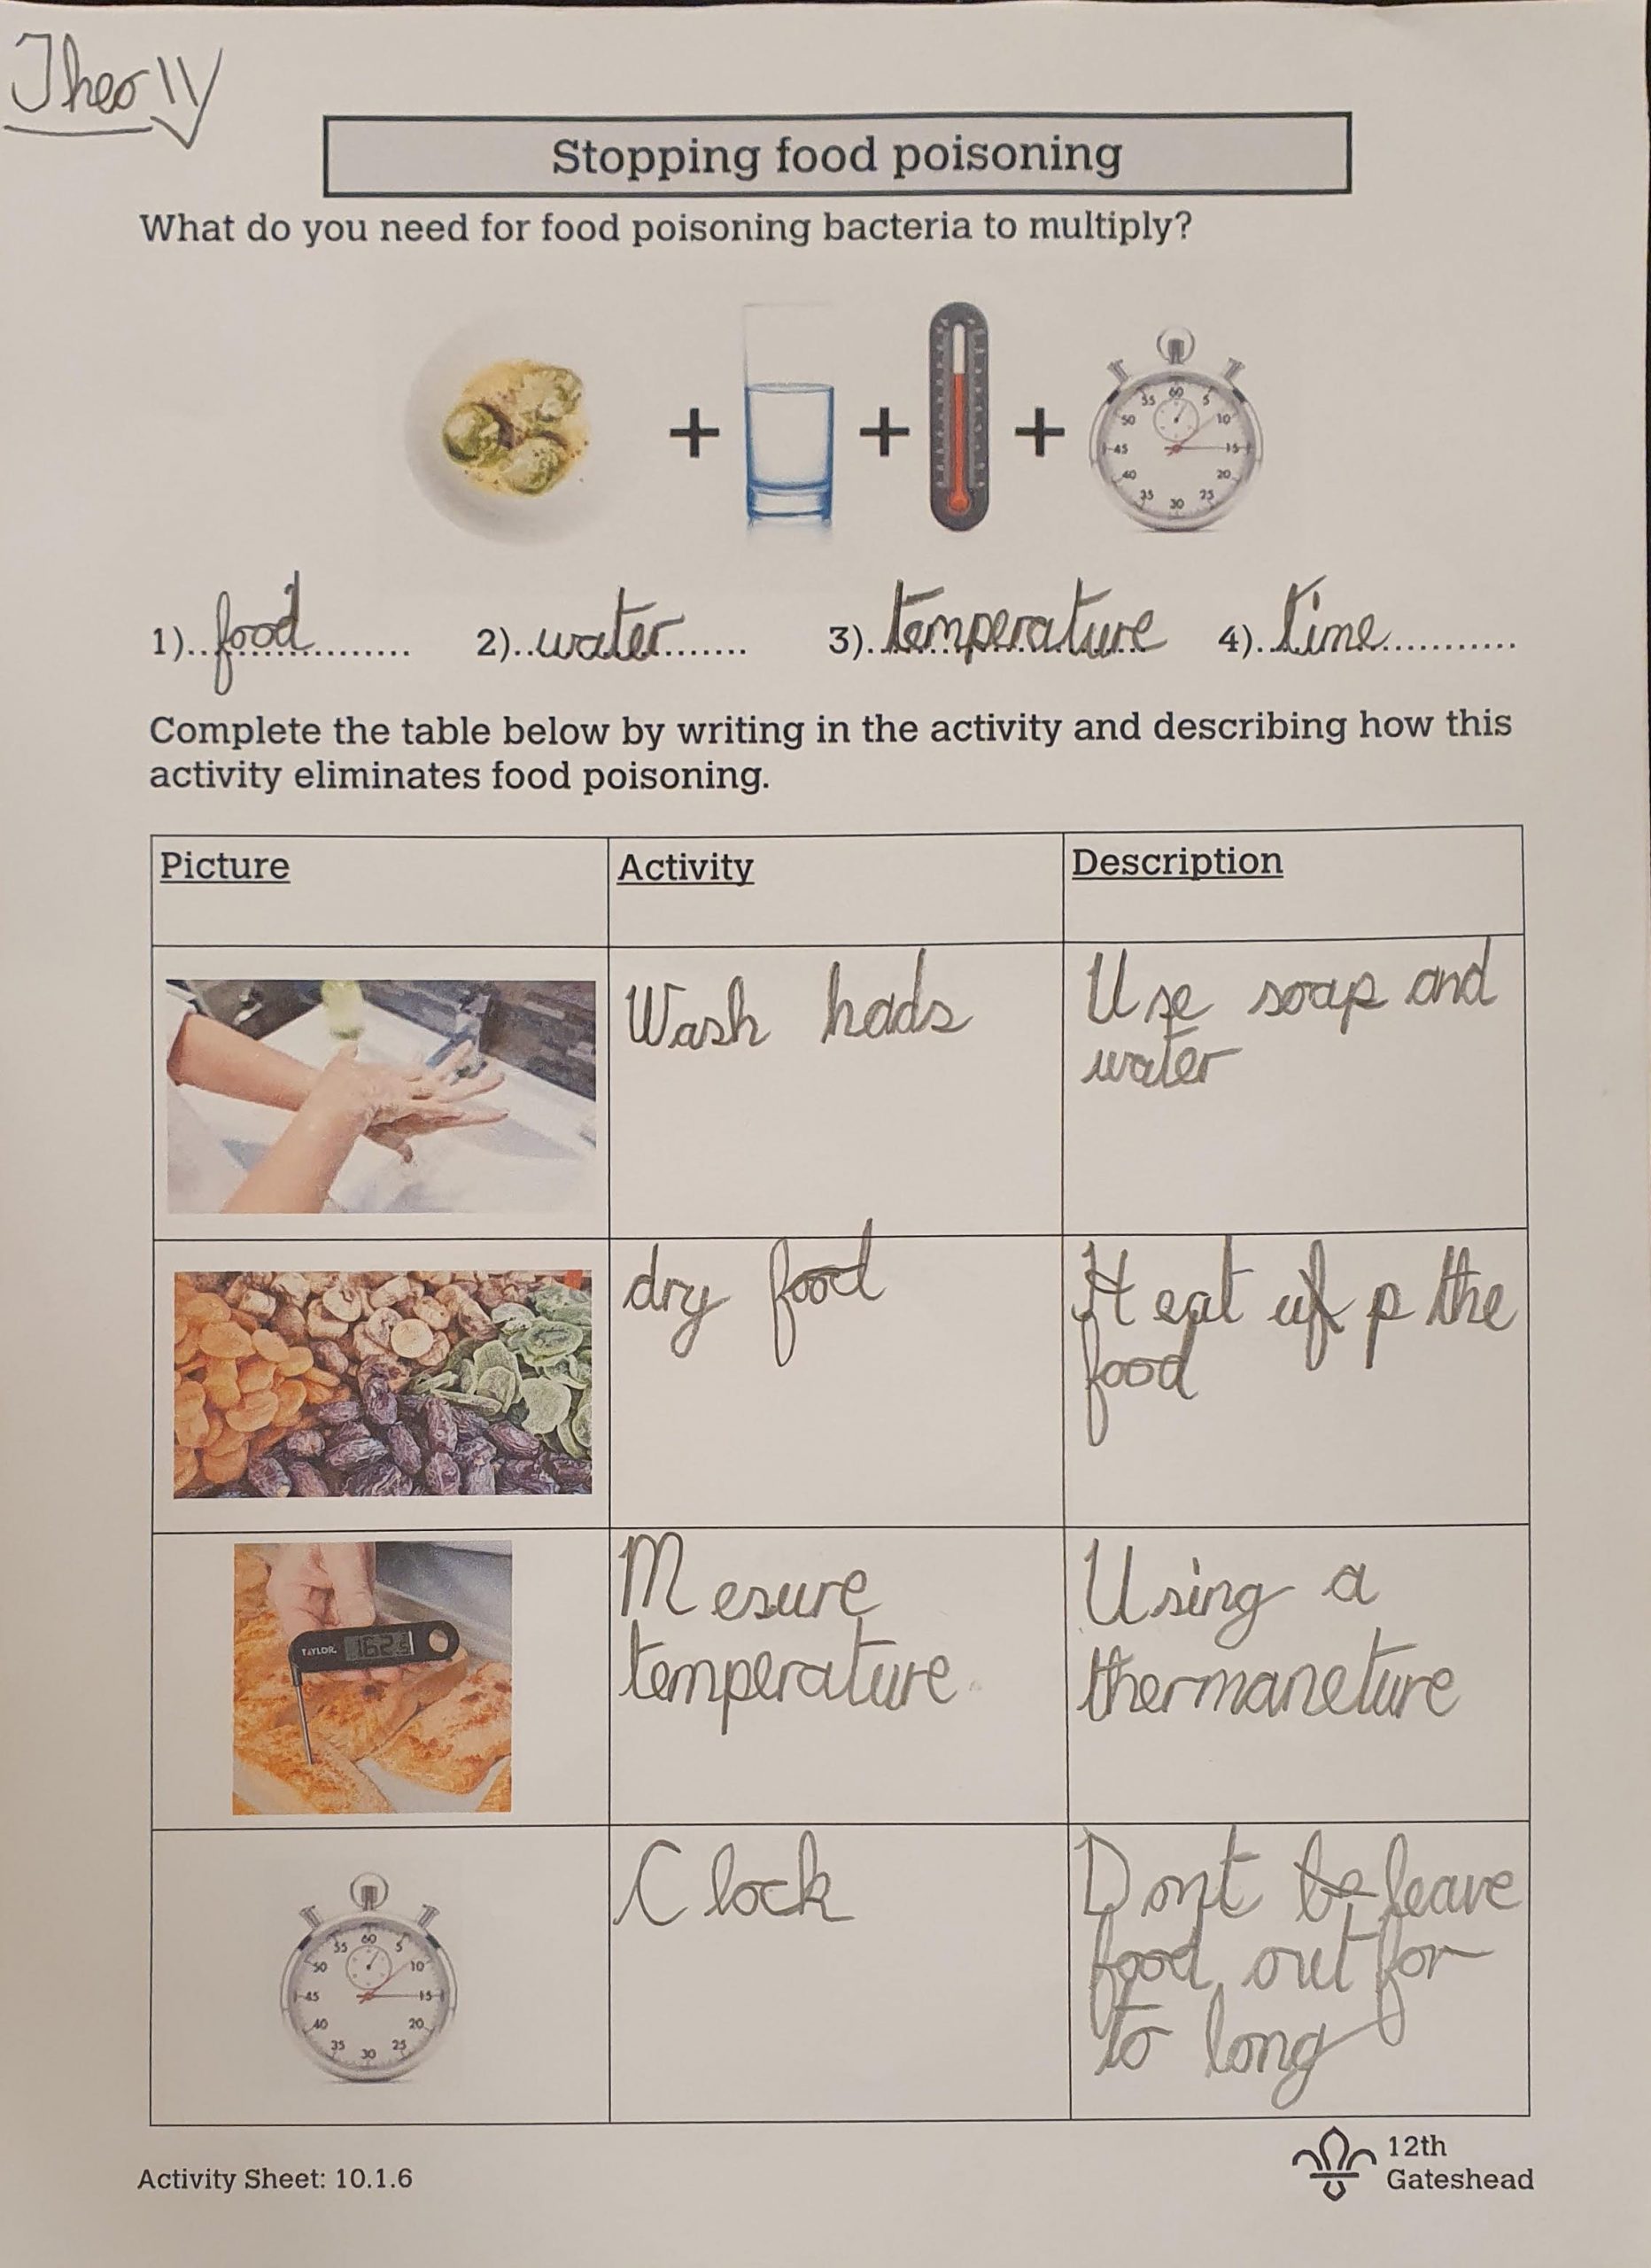 Theo W
Stopping food poisoning
What do you need for food poisoning bacteria to multiply?
+ + +
60 5 10 15 20 25 30 35 40 45 50 55
1)..food.......... 2)..water....... 3)..temperature 4)..time...........
Complete the table below by writing in the activity and describing how this
activity eliminates food poisoning.
Picture Activity Description
Wash hads
Use soap and
water
dry food
Heat up the
food
TAYLOR 162.5
Mesure
temperature
Using a
thermaneture
60 5 10 15 20 25 30 35 40 45 50 55
Clock
Dont be leave
food out for
to long
Activity Sheet: 10.1.6
12th
Gateshead